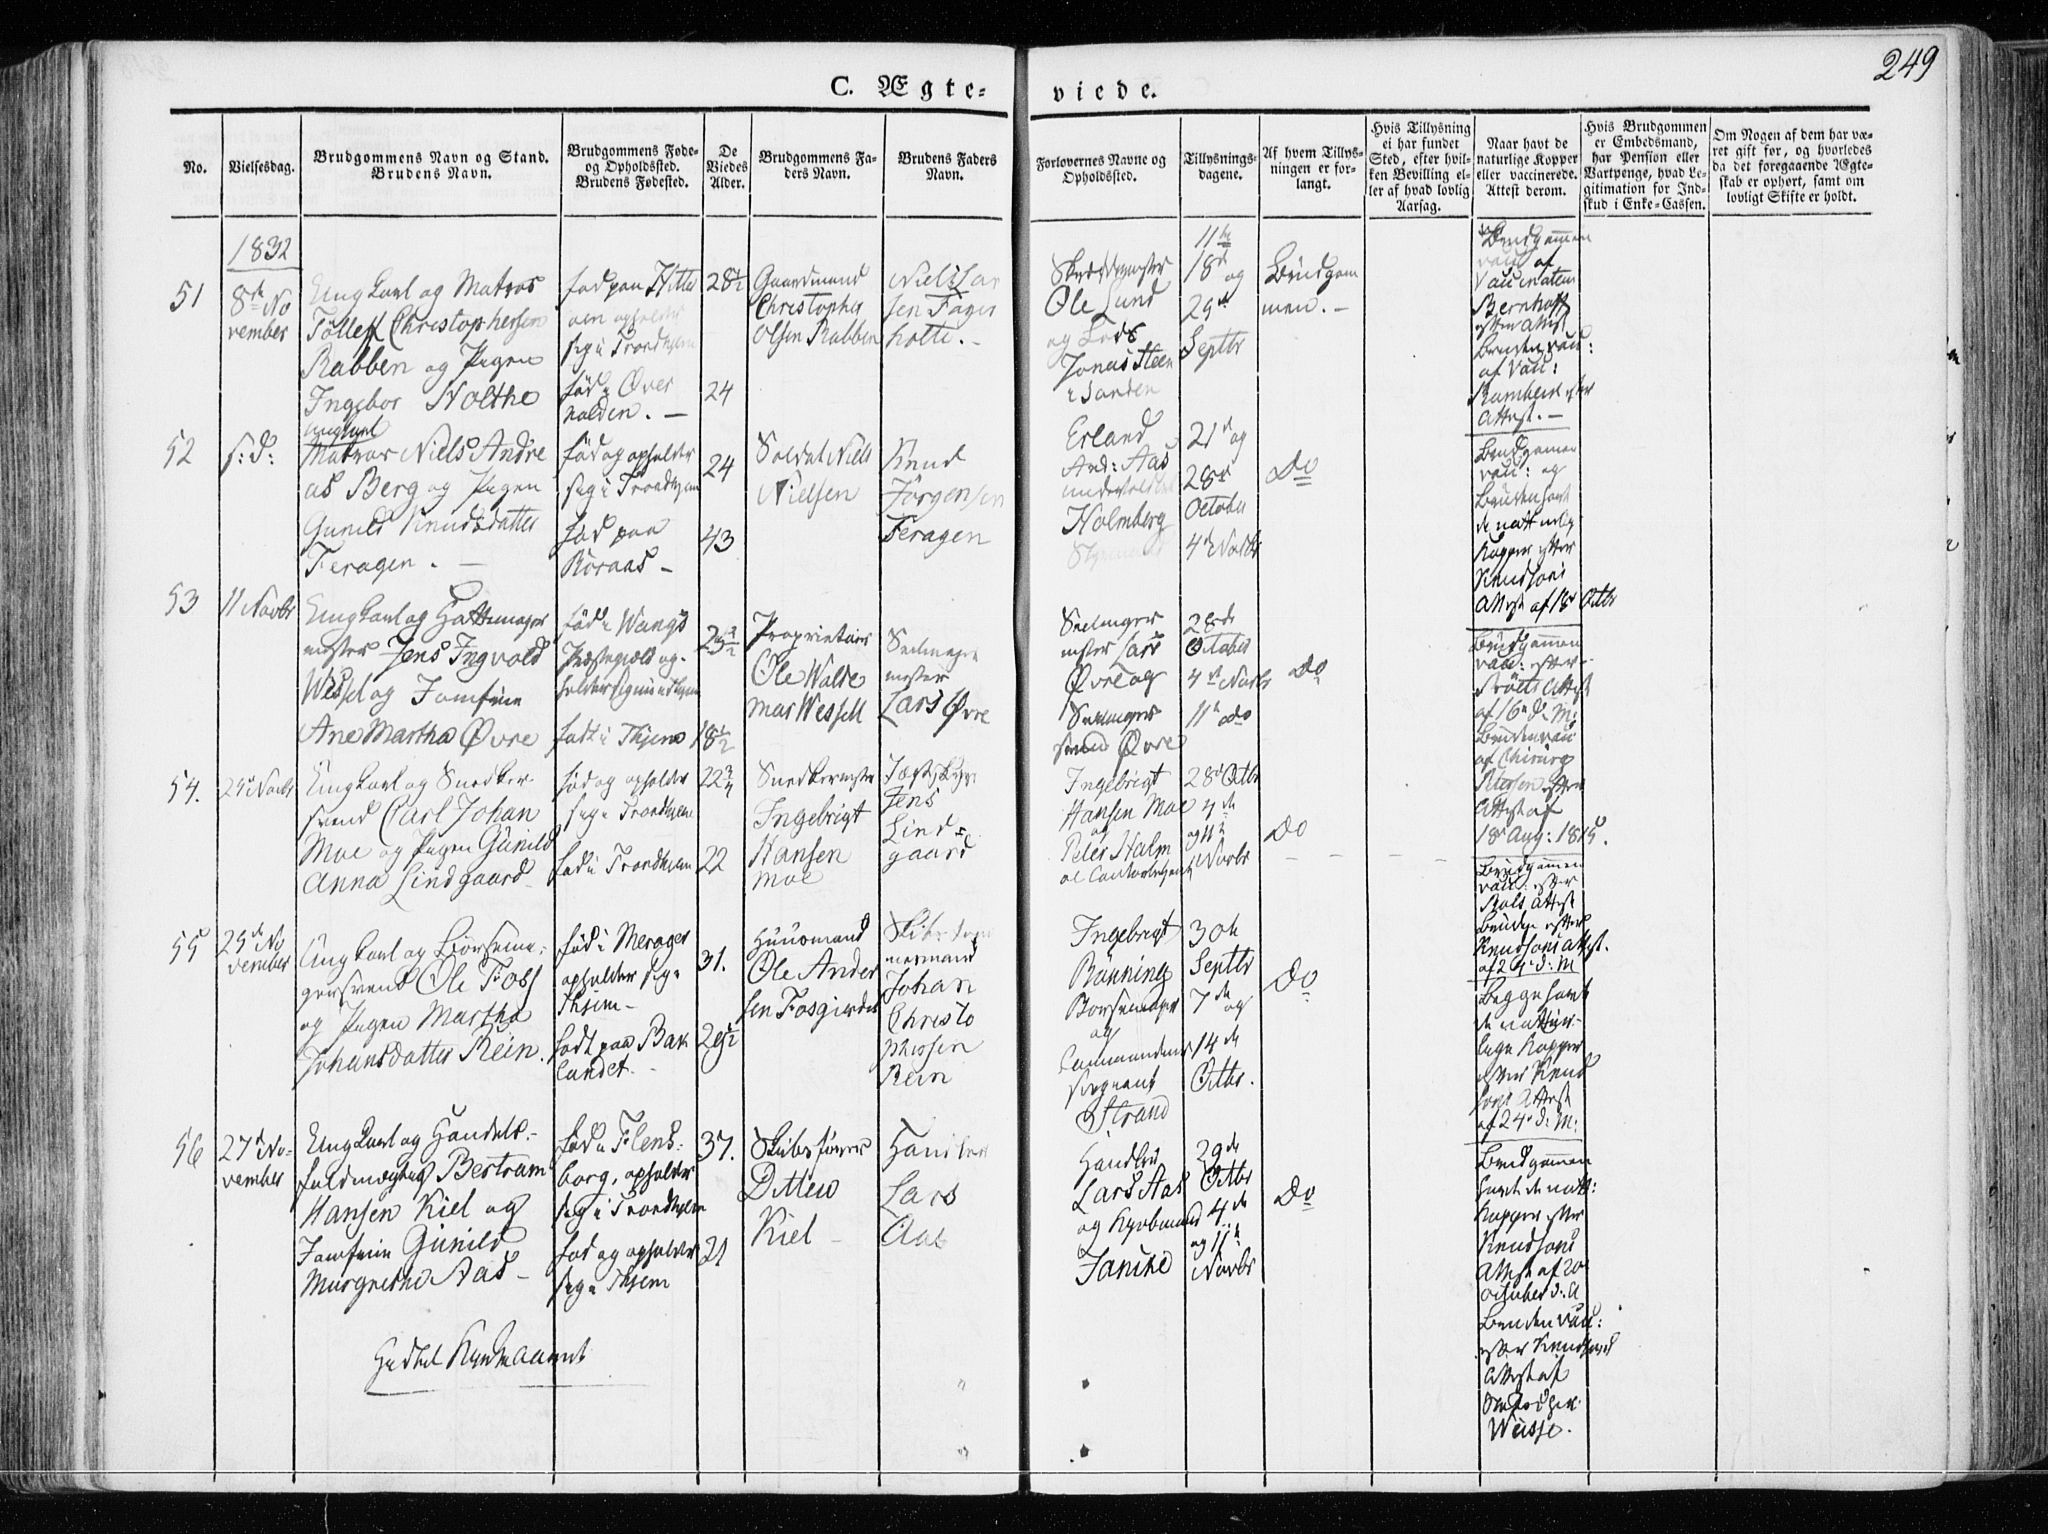 249
C. Ægte-
viede.
No.
Vielsesdag.
Brudgommens Navn og Stand.
Brudens Navn.
Brudgommens Føde-
og Opholdssted.
Brudens Fødested.
De
Viedes
Alder.
Brudgommens Fa-
ders Navn.
Brudens Faders
Navn.
Forlovernes Navne og
Opholdssted.
Tillysnings-
dagene.
Af hvem Tillys-
ningen er for-
langt.
Hvis Tillysning
ei har fundet
Sted, efter hvil-
ken Bevilling el-
ler af hvad lovlig
Aarsag.
Naar havt de
naturlige Kopper
eller vaccinerede.
Attest derom.
Hvis Brudgommen
er Embedsmand,
har Pension eller
Vartpenge, hvad Le-
gitimation for Ind-
skud i Enke-Cassen.
Om Nogen af dem har væ-
ret gift før, og hvorledes
da det foregaaende Ægte-
skab er ophørt, samt om
lovligt Skifte er holdt.
1832
51
8de No
vember
Ungkarl og Matros
Tolleff Christophersen
Rabben og Pigen
Ingebor Nolthe
fød paa Hitter
øen opholder
sig i Trondhjem
fød i Over
halden. —
28½
24
Gaardmand
Christopher
Olsen Rabben
Niels
sen
holte. -
Ole Lund
og
Jonas Steen
i Sanden
11te
18d og
29d
Septbr
Brudgom
men. -
Brudgommen
vac: af
Vaccinateur
Bernhoff
efter Attest
Bruden vac:
af Vac:
efter
Attest. —
52
s: d:
Ungkarl
Matros Niels Andre
as Berg og Pigen
Gunild Knudsdatter
Feragen. —
fød og opholder
sig i Trondhjem
fød paa
Røraas -
24
43
Soldat Niels
Nielsen
Knud
Jørgensen
Feragen
Erland
And: Aas
Holmberg
21d og
28de
October
4d Novbr
Do
Brudgommen
vac: og
Bruden havt
de naturlig
Kopper efter
Knudsons
Attest af 18d Octbr
53
11 Novbr
Ungkarl og Hattemager
mester Jens Ingvold
Wessel og Jomfrue
Ane Martha Øvre
fød i Wangs
Præstegjeld og
holder sig i Trondhjem
født i Thjem
18½
Proprietair
Ole Walde
mar Wessell
Sadelmager
mester
Lars Øvre
Sadelmager
mester Lars
Øvre og
Sadelmager
svend Øvre
28de
October
4de Novbr
11te do
Do
Brudgommen
vac: efter
Attest
af 16de d: M:
Bruden vac:
af Chirurg
Petersen efter
Attest af
18d Aug: 1815.
54.
25d Novbr
Ungkarl og Snedker
svend Carl Johan
Moe og Pigen Gunild
Anna Lindgaard
fød og opholder
sig i Trondhjem
fød i Trondhjem
22¾
22
Snedkermester
Ingebrigt
Hansen
Moe
Jens
Lind-
gaard
Ingebrigt
Hansen Moe
og
Peter Halm
28d Octbr
4de
og 11te
Novbr
Do
Brudgommen
vac: efter
Attest
Bruden efter
Knudsons Attest.
af 24d d: M
55
25de No
vember
Ungkarl og Børsema-
gersvend Ole Foss
og Pigen Martha
Johansdatter Rein.
fød i Merager
opholder sig i
Thjem -
født paa Bak
landet. -
31.
29½
Huusmand
Ole Ander
sen Fosgierdet
Skibstøm
mermand
Johan
Christo
phersen
Rein
Ingebrigt
Rønning
Børsemager
og
Commandeur
sergeant
Strand
30te
Septbr
7de og
14de
Octbr.
Do
Begge havt
de natur-
lige Kopper
efter Knud
sons Attest
af 24d d: M:
56
27d No-
vember
Ungkarl og Handels-
fuldmægtig Bertram
Hansen Kiel og
Jomfrue Gunild
Margrethe Aas -
fød i Flens-
borg, opholder
sig i Trondhjem
fød og opholder
sig i Thjem
37.
21
Skibsfører
Ditlev
Kiel -
Handlende
Lars
Aas
Handlen
Lars Aas
og Kjøbmand
Janike
29de
Octbr
4de
og 11te
Novbr
Do
Brudgommen
havt de natt:
Kopper efter
Knudsons
Attest af 20
October d: A
Bruden vac:
efter Knudsons
Attest af
Weisse.